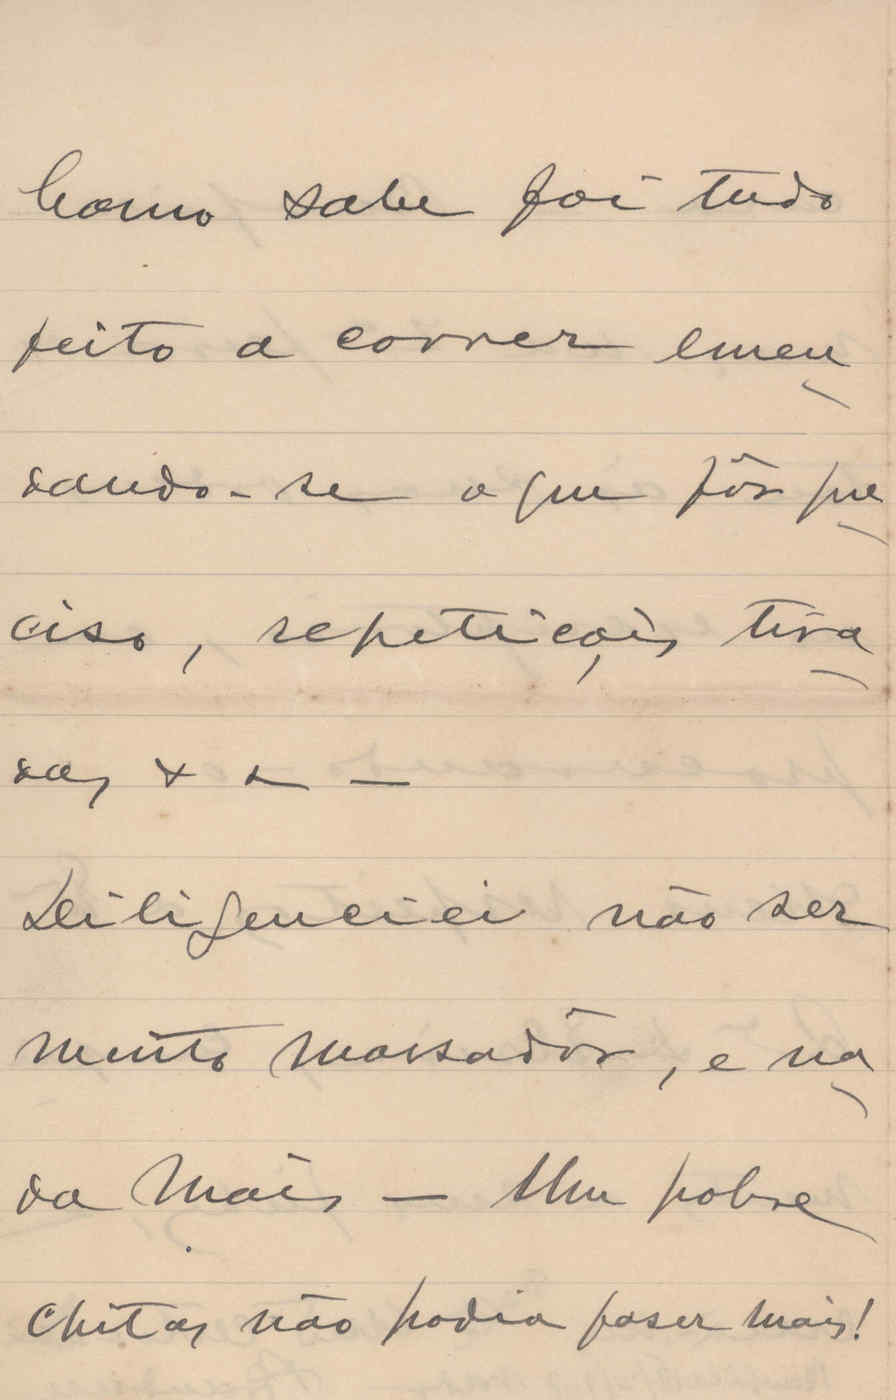 Como sabe foi tudo
feito a correr emen
dando-se o que fôr pre
ciso, repetições tira
das & & —
Deiligenciei não ser
muito massadôr, e na
da mais — Um pobre
chitas não podia faser mais!